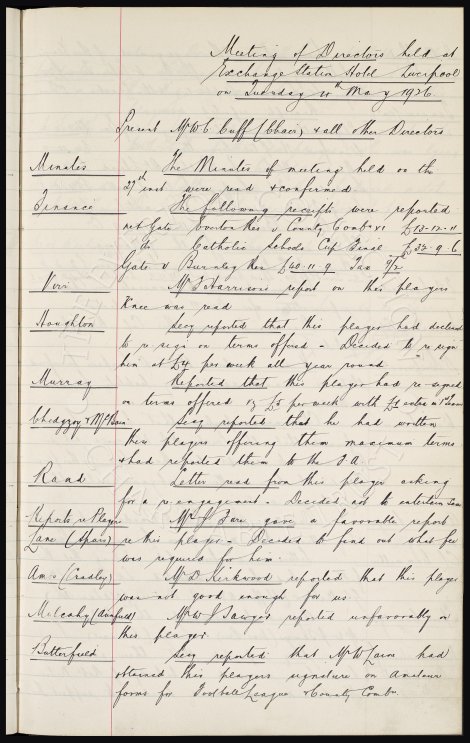 Meeting of Directors held at
Exchange Station Hotel Liverpool
on Tuesday 4th May 1926
Present Mr W C Cuff (Chair) & all other Directors
Minutes The Minutes of meeting held on the
27th inst were read & confirmed
Finance The following receipts were reported
net Gate Everton Res v County Combn XI £13-12-11
Do Catholic Schools Cup Final £33-9-6
Gate v Burnley Res £40-11-9 Tax 9/2
Virr Mr T Harrison's report on this players
Knee was read
Houghton Secy reported that this player had declined
to re sign on terms offered - Decided to re sign
him at £4 per week all year round
Murray Reported that this player had re-signed
on terms offered £5 per week with £1 extra in 1st Team
Chedgzoy & McBain Secy reported that he had written
these players offering them maximum terms
& had reported them to the F.A.
Raad Letter read from this player asking
for a re engagement - Decided not to entertain same
Reports re Players Mr J Fare gave a favorable report
Lane (Spain) re this player - Decided to find out what fee
was required for him
Amos (Cradley) Mr D Kirkwood reported that this player
was not good enough for us
Mulcahy (Anfield) Mr W J Sawyer reported unfavorably on
this player
Butterfield Secy reported that Mr W had
obtained this players signature on Amateur
forms for Football League & County Combn